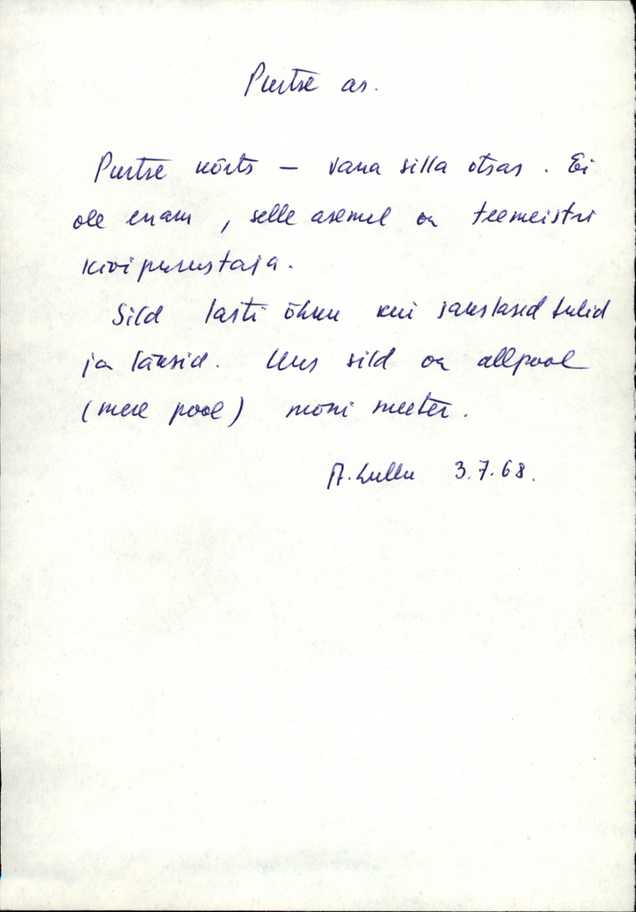 Purtse as.
Purtse kõrts – vana silla otsas. Ei
ole enam, selle asemel on teemeistri
kivipurustaja.
Sild lasti õhku kui sakslased tulid
ja läksid. Uus sild on allpool
(mere pool) mõni meeter.
A. Lullu 3.7.68.